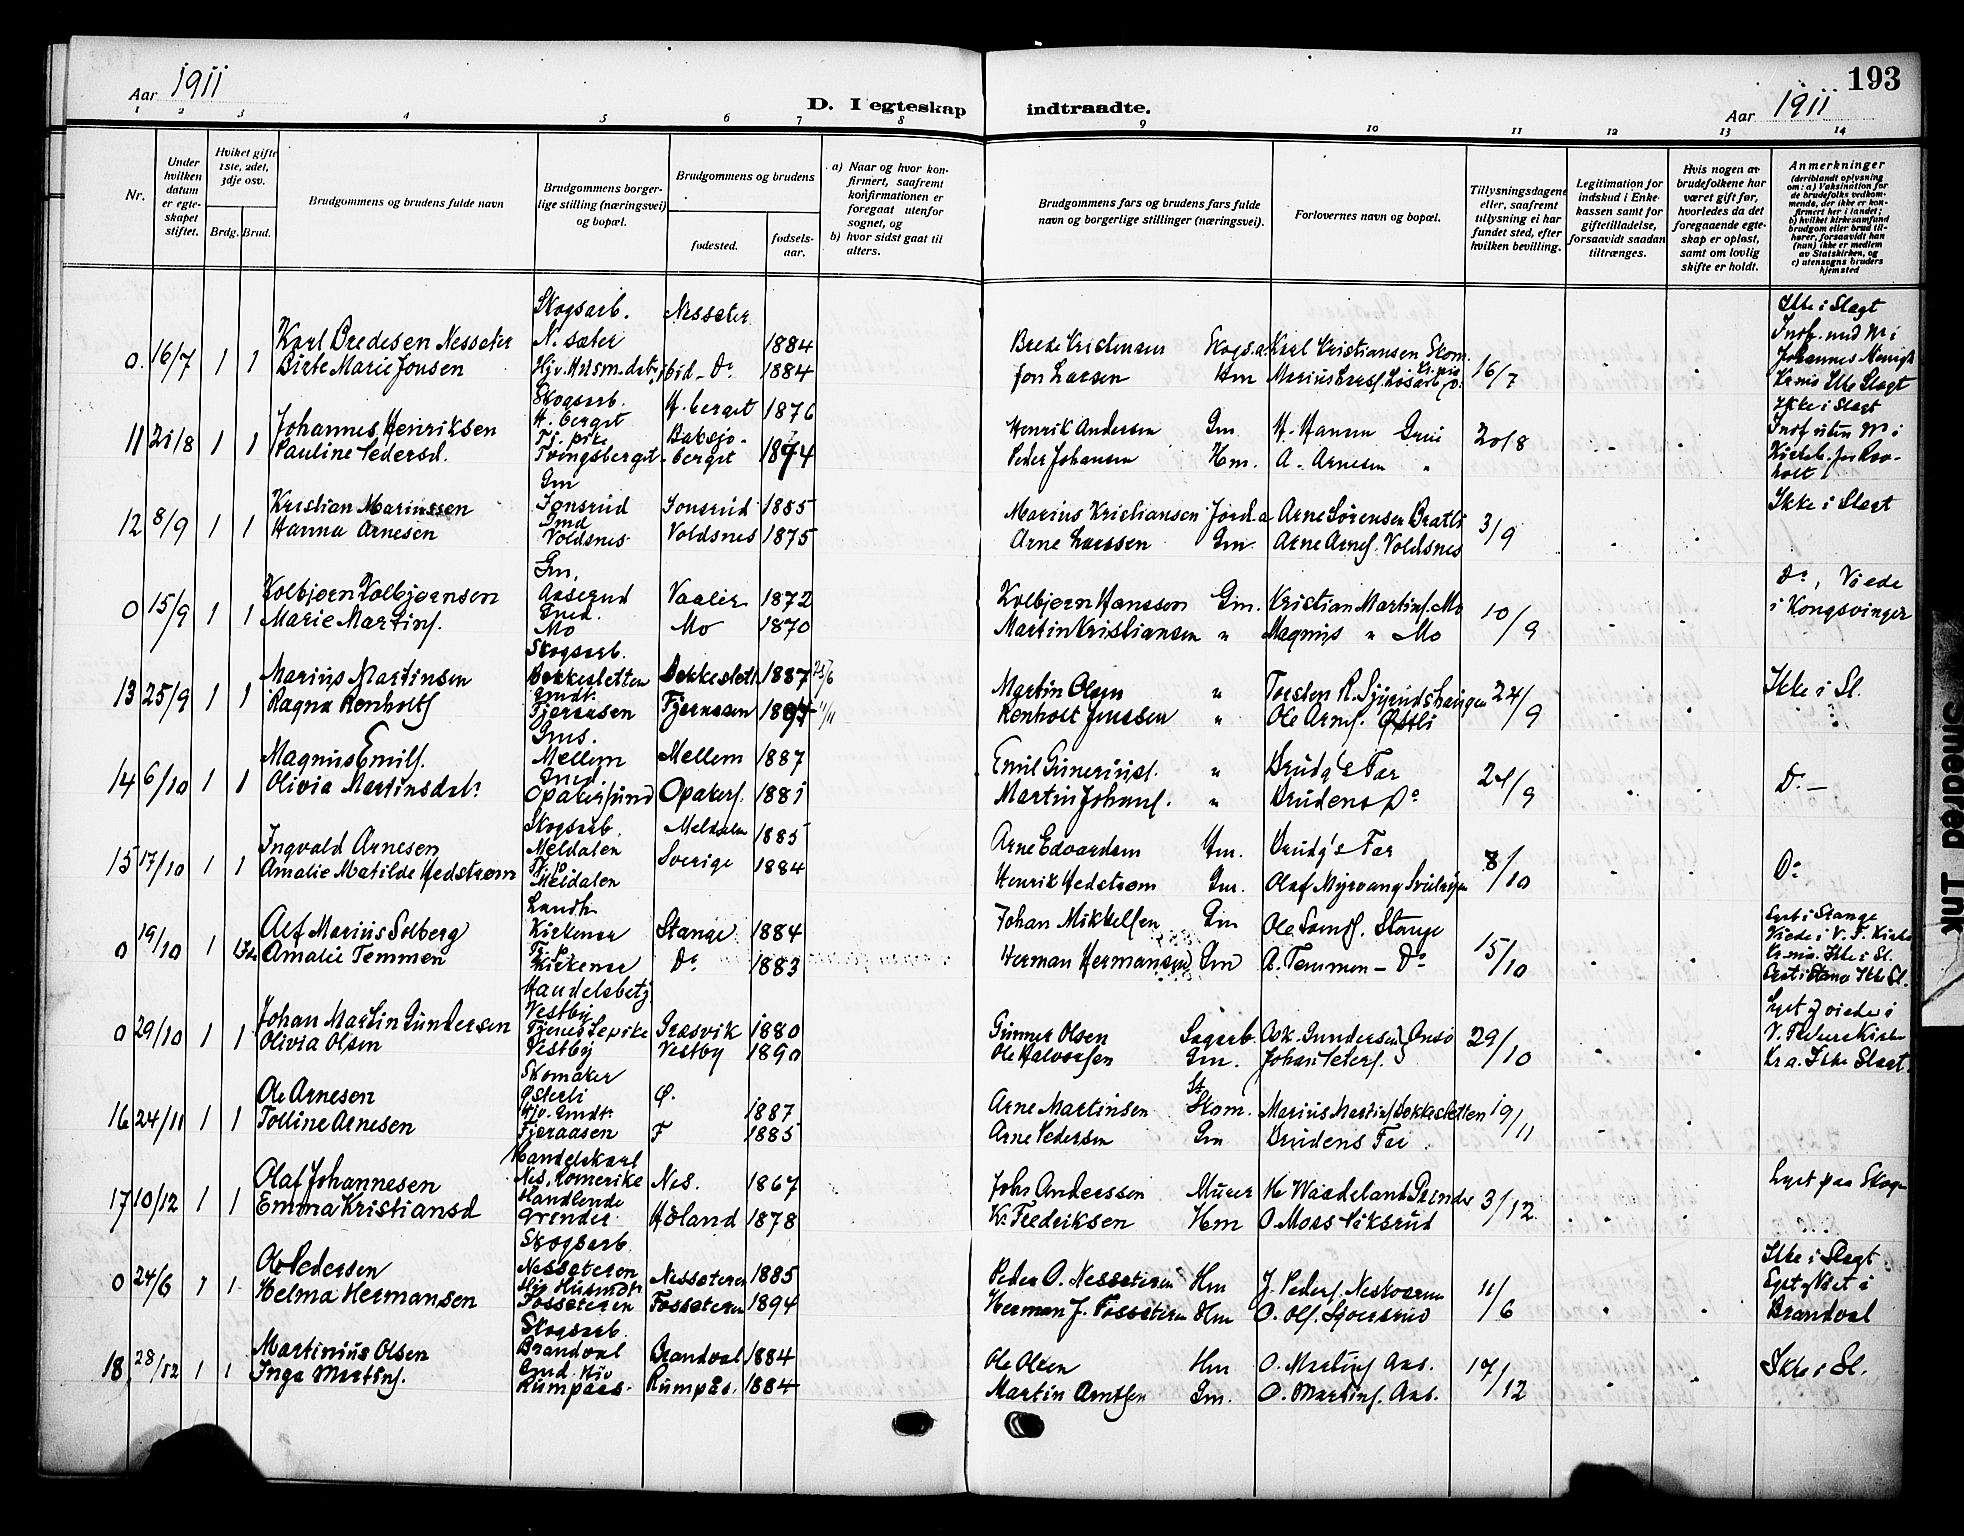 Aar 1911
D. I egteskap indtraadte.
Aar 1911
193
1 2 3 4 5 6 7 8 9 10 11 12 13 14
Nr.
Under hvilken datum er egteskapet stiftet.
Hviket gifte 1ste, 2det, 3dje osv.
Brdg. Brud.
Brudgommens og brudens fulde navn
Brudgommens borgerlige stilling (næringsvei) og bopæl.
Brudgommens og brudens
fødested.
fødselsaar.
a) Naar og hvor konfirmert, saafremt konfirmationen er foregaat utenfor sognet, og
b) hvor sidst gaat til alters.
Brudgommens fars og brudens fars fulde navn og borgerlige stillinger (næringsvei).
Forlovernes navn og bopæl.
Tillysningsdagene eller, saafremt tillysning ei har fundet sted, efter hvilken bevilling.
Legitimation for indskud i Enkekassen samt for giftetilladelse, forsaavidt saadan tiltrænges.
Hvis nogen av brudefolkene har været gift før, hvorledes da det foregaaende egteskap er opløst, samt om lovlig skifte er holdt.
Anmerkninger
(deriblandt oplysning om: a) Vaksination for de brudefolks vedkommende, der ikke er konfirmert her i landet; b) hvilket kirkesamfund brudgom eller brud tilhører, forsaavidt han (hun) ikke er medlem av Statskirken, og c) utensogns bruders hjemsted
Skogsarb. Nesseter Ikke i Slegt
0. 16/7 1 1 Karl Bredesen Nesseter N. sæter 1884 Brede Kristensen Skogsa. Karl Kristiansen Skom. 16/7
Birte Marie Jonsen ibid D° 1884 Jon Larsen Hm
Skogsarb. Ikke i Slegt
11 21/8 1 1 Johannes Henriksen H. berget H. berget 1876 Henrik Andersen Gm H. Hansen Grue 20/8
Pauline Pedersd. Tj. pike 1874 Peder Johansen Hm. A. Arnesen "
Gm
12 8/9 1 1 Kristian Marinssen Jonsrud Jonsrud 1855 Marius Kristiansen Jord.a Arne Sørensen Bratli 3/9 Ikke i Slegt
Hanna Arnesen Gmd Voldsnes Voldsnes 1875 Arne Larssen Gm. Arne Arnes. Voldsnes
Gm.
0 15/9 1 1 Kolbjørn Kolbjørnsen Aaserud Vaaler 1872 Kolbjørn Hansson Gm. Kristian Martins. Mo 10/9 D°, Viede i Kongsvinger
Marie Martins. Gmd. Mo Mo 1870 Martin Kristiansen " Magnus " Mo
Skogsarb.
13 25/9 1 1 Marius Martinsen Bekkesletten Bekkeslett. 1887 25/6 Martin Olsen " 24/9 Ikke i Sl.
Ragna Renholts Gmdt. Fjeraasen Fjeraasen 11/11 Renholt Jenssen " Ole Arnes. Østli
Gms.
14 6/10 1 1 Magnus Emils. Mellem Mellem 1887 Emil Gunerius. " Brudg's Far 24/9 D° —
Olivia Martinsdat. Gmd. Opakersund Opakers. 1881 Martin Johans. " Brudens D°
Skogsarb.
15 17/10 1 1 Ingvald Arnesen Meldalen Meldalen 1885 Arne Edvardsen Hm. Brudg's Far 8/10 D°
Amalie Matilde Hedstrøm Tj. p. Meldalen Sverige 1884 Henrik Hedstrøm Gm. Olaf Myrvang
Landh.
0 19/10 1 Alf Marius Solberg Kirkenær Stange 1884 Johan Mikkelsen Gm Stange 15/10 Lyst i Stange
Amalie Temmen Tj. p. Kirkenær D° 1883 Herman Hermansen Gm A. Temmen — D° Viede i V. F. Kirke Kr.a. Ikke i Sl.
Handelsbetj.
0 29/10 1 1 Johan Martin Gundersen Vestby Græsvik 1880 Gunner Olsen Sagarb. Ask. Gundersen Onsø 29/10 Lyst & viede i
Olivia Olsen Tjenestepike Vestby Vestby 1890 Ole Halvorsen Gm. Johan Peders. V. Fredens Kirke Kr.a. Ikke Slegt.
Skomaker
16 24/11 1 1 Ole Arnesen Østerli Ø. 1887 Arne Martinsen Skom. Marius Martins. Bekkesletten 19/11
Tolline Arnesen Hjv. Gmdt. Fjeraasen F 1885 Arne Pedersen Gm Brudens Far.
Handelskarl
17 10/12 1 1 Olaf Johannesen Nes, Romerike Nes. 1867 Johs Anderssen Murer Grinder 3/12 Lyst paa Skogn
Emma Kristiansd Handlende Grinder Høland 1878 K. Fredriksen Hm O. Moss Viksrud
Skogsarb.
0 24/6 1 1 Ole Pedersen Nesseteren Nesseteren 1885 Peder O. Nesseteren Hm 11/6 Ikke i Slegt
Helma Hermansen Hjv. Husmdt. Fosseteren Fosseteren 1894 Herman J. Fosseteren Hm Lyst og Viet i Brandval
Skogsarb.
18. 28/12 1 1 Martinius Olsen Brandval Brandval 1884 Ole Olsen Hm O. Martins. Aas. 17/12 Ikke i Sl.
Inga Martins. Gmd. Hjv Rumpaas. Rumpås. 1884 Martin Arntsen Gm. O. Martins. Aas.
Smeared Ink